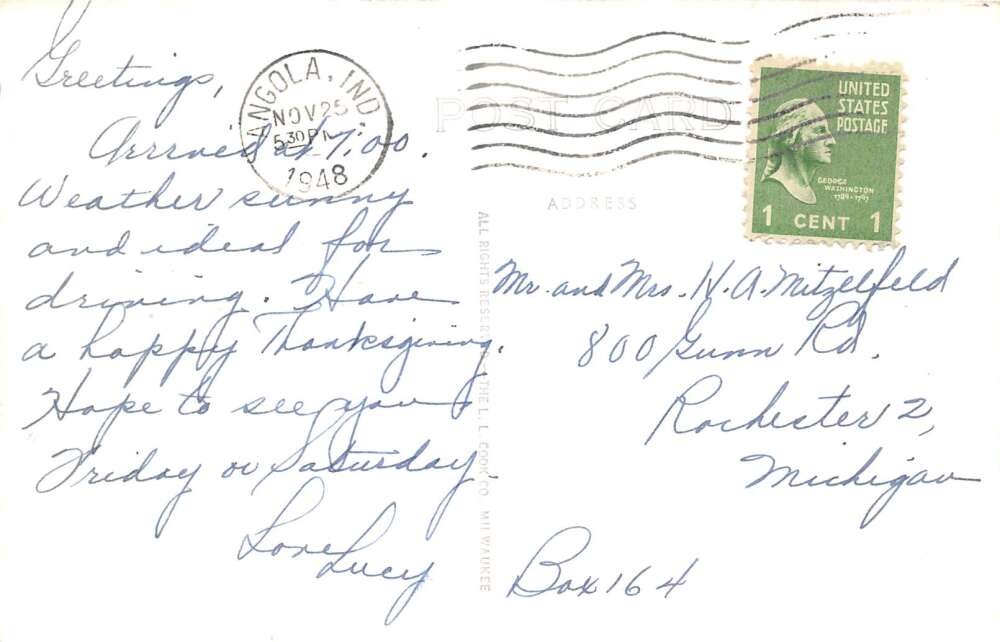 Greetings,
Arrived at 7:00.
Weather sunny
and ideal for
driving. Have
a happy Thanksgiving.
Hope to see you
Friday or Saturday.
Love
Lucy
ANGOLA, IND.
NOV 25
5 30 PM
1948
POST CARD
ADDRESS
UNITED
STATES
POSTAGE
GEORGE
WASHINGTON
1789-1797
1 CENT 1
Mr. and Mrs. H. A. Mitzelfeld
800 Gunn Rd.
Rochester 2,
Michigan
Box 164
ALL RIGHTS RESERVED-THE L.L. COOK CO. MILWAUKEE